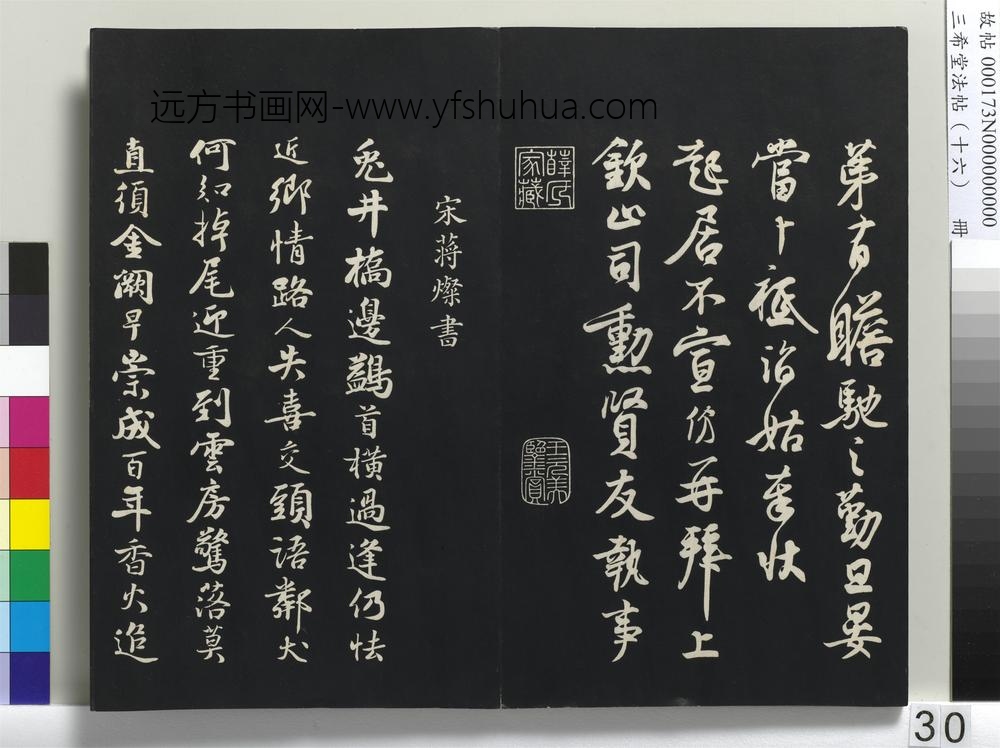 第有瞻馳之勤旦晏
當卜祗詣姑奉狀
起居不宣仿再拜上
欽止司勳賢友執事
薛氏家藏
宋蔣燦書
兎井橋邊鷁首横過逢仍怯
近鄉情路人失喜交頭語鄰犬
何知掉尾迎重到雲房驚落莫
直須金闕早崇成百年香火追
远方书画网-www.yfshuhua.com
故帖 000173N000000000
三希堂法帖(十六) 冊
30